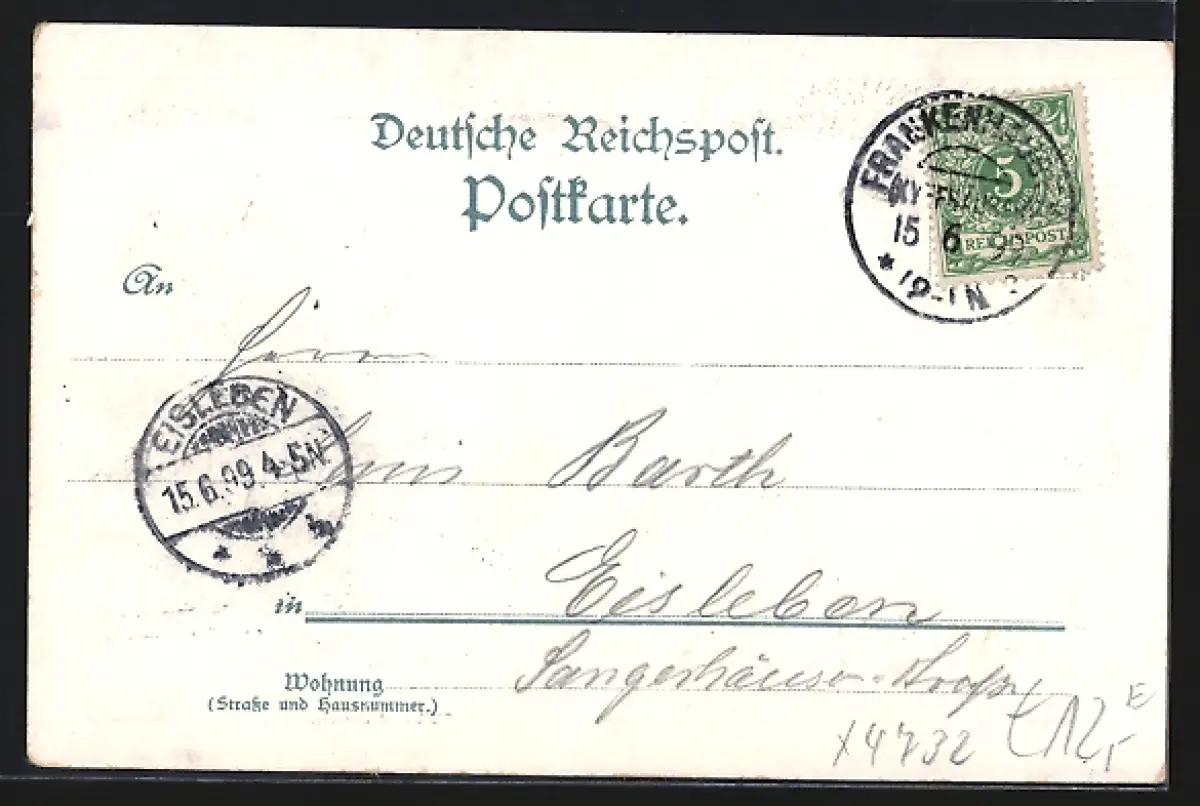 Deutsche Reichspost.
Postkarte.
FRANKENHAUSEN
(KYFFHÄUSER)
15 6 99
* 12-1N
5
REICHSPOST
An
Herrn
EISLEBEN
15.6.99 4-5N.
Barth
in Eisleben
Wohnung Sangerhäuser-Straße
(Straße und Hausnummer.)
x4732
12,- E